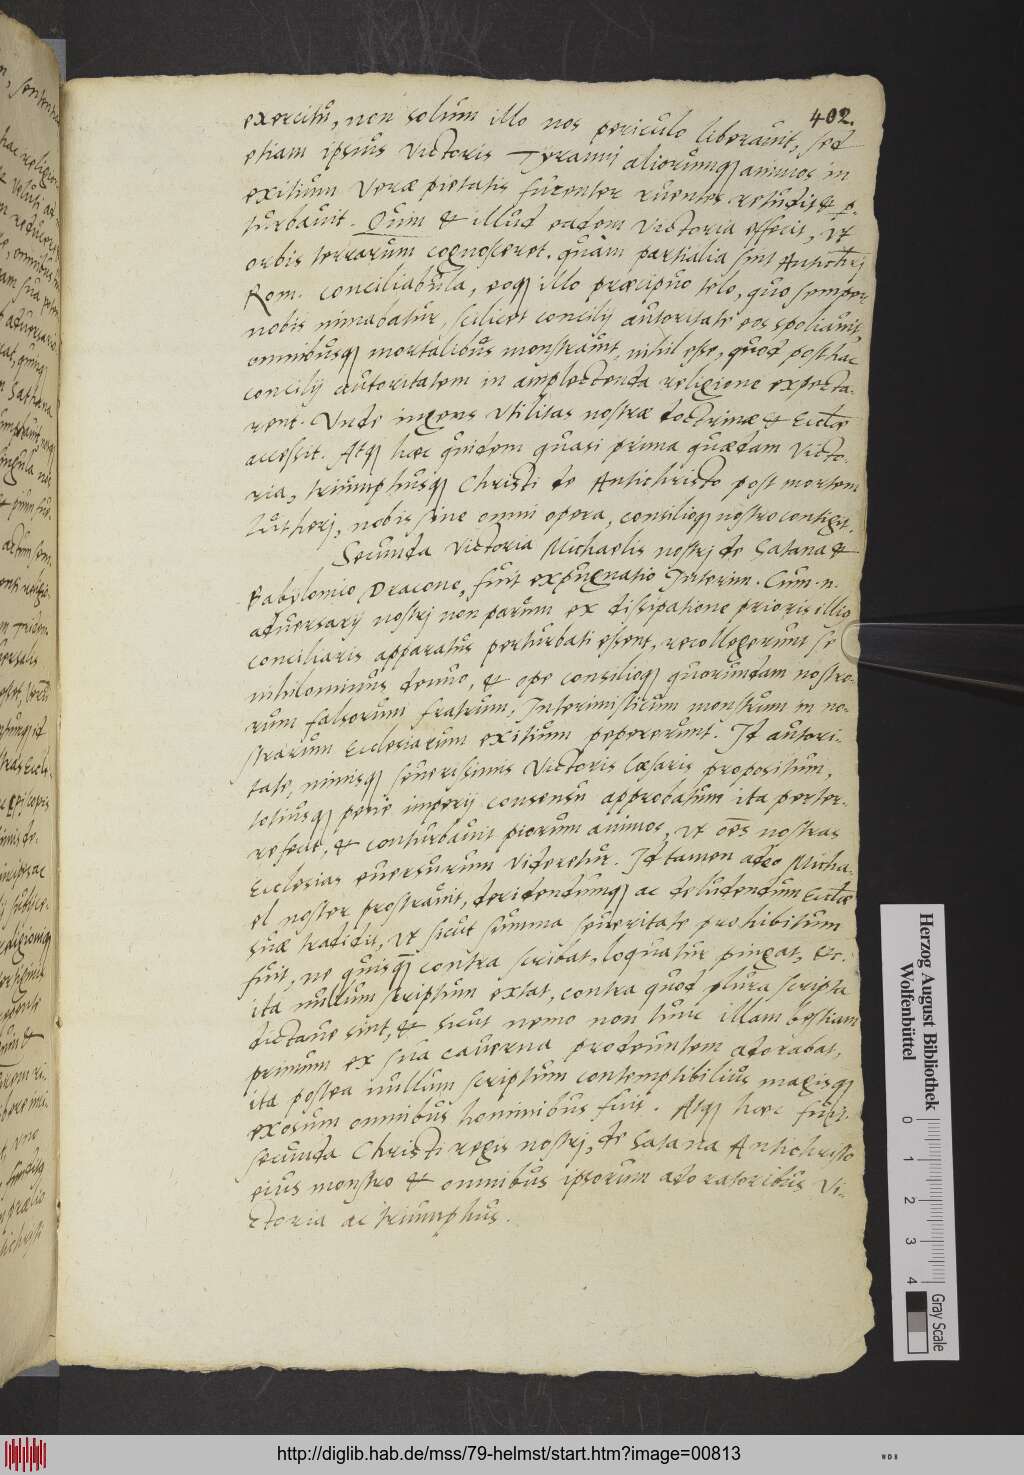 402.
exercitu, non solum illo nos periculo liberauit, sed
etiam ipsius victoris Tyranni aliorumq; animos in
exitium veræ pietatis furenter ruentes retudit & p̱-
turbauit. Quin & illud eadem victoria effecit, vt
orbis terrarum cognosceret, quàm partialia sint Antichri
Rom. conciliabula, eoq; illo præcipuo telo, quo semper
nobis minabatur, scilicet concilij autoritate eos spoliauit,
omnibusq; mortalibus monstrauit, nihil esse, quod posthac
concilij autoritatem in amplectenda religione expecta-
rent. Vnde ingens vtilitas nostræ doctrinæ & Eccl̄æ
accessit. Atq; hæc quidem quasi prima quædam victo-
ria, triumphusq; Christi de Antichristo post mortem
Lutherj, nobis sine omni opera, consilioq; nostro contigit.
Secunda victoria Michaelis nostrj de Satana &
Babilonico Dracone, fuit expugnatio Interim. Cum .n.
aduersarij nostrj non parum ex dissipatione prioris illio
conciliaris apparatus perturbati essent, recollegerunt se
nihilominus denuo, & ope consilioq; quorundam nostro-
rum falsorum fratrum, Interimisticum monstrum in no-
strarum Ecclesiarum exitium pepererunt. Id autori-
tate, minisq; seuerissimis victoris Cæsaris propositum,
totiusq; pene imperij consensu approbatum ita perter-
refecit, & conturbauit piorum animos, vt oēs nostras
Ecclesias euersurum videretur. Id tamen adeo Micha-
el noster prostrauit, deridendumq; ac deludendum Eccl̄æ
suæ tradidit, vt sicut summa seueritate prohibitum
fuit, ne quisq̄ contra scribat, loquatur, pingat, &c.
ita nullum scriptum extat, contra quod plura scripta
dictaue sint, & sicut nemo non hanc illam bestiam
primum ex sua cauerna prodeuntem adorabat,
ita postea nullum scriptum contemptibilius magisq;
exosum omnibus hominibus fuit. Atq; hæc fuit
secunda Christi regis nostrj, de Satana Antichristo
eius monstro & omnibus ipsorum adoratoribus vi-
ctoria ac triumphus.
Herzog August Bibliothek
Wolfenbüttel
0 1 2 3 4
Gray Scale
http://diglib.hab.de/mss/79-helmst/start.htm?image=00813